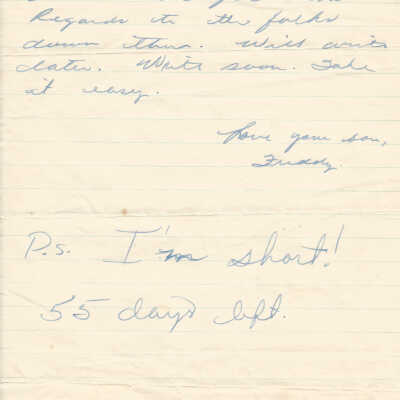 Regards to the folks
down there. Will write
later. Write soon. Take
it easy.
Love your son,
Freddy.
P.s. I'm short!
55 days left.